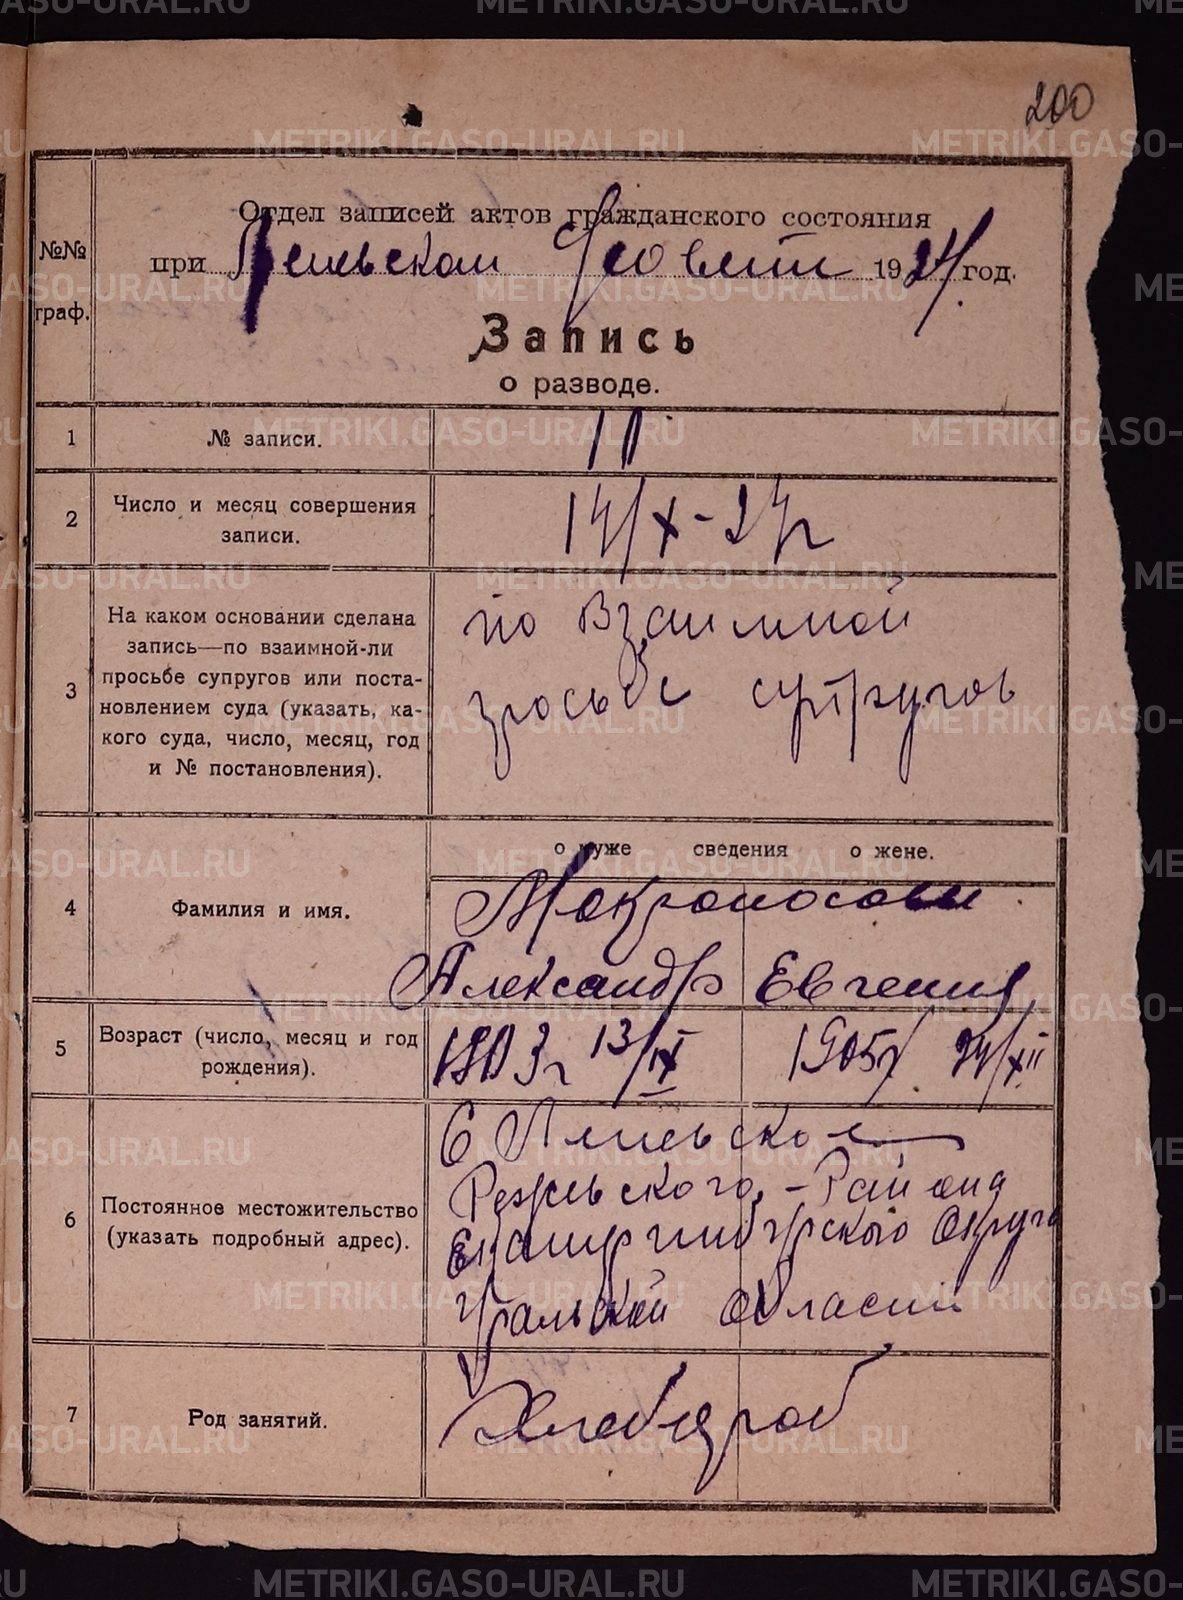 200
Отдел записей актов гражданского состояния
№№
граф.
при Совете 1924 год.
Запись
о разводе.
1
№ записи.
11
2
Число и месяц совершения
записи.
14/X - 24 г
3
На каком основании сделана
запись—по взаимной-ли
просьбе супругов или поста-
новлением суда (указать, ка-
кого суда, число, месяц, год
и № постановления).
по Взаимной
просьбе супругов
о муже сведения о жене.
4
Фамилия и имя.
Мокроносовы
Александр Евгения
5
Возраст (число, месяц и год
рождения).
1903 г 13/IX
1905 г 24/XII
6
Постоянное местожительство
(указать подробный адрес).
С
Режевского - Района
Екатеринбургского Округа
Уральской области
7
Род занятий.
Хлебороб
METRIKI.GASO-URAL.RU